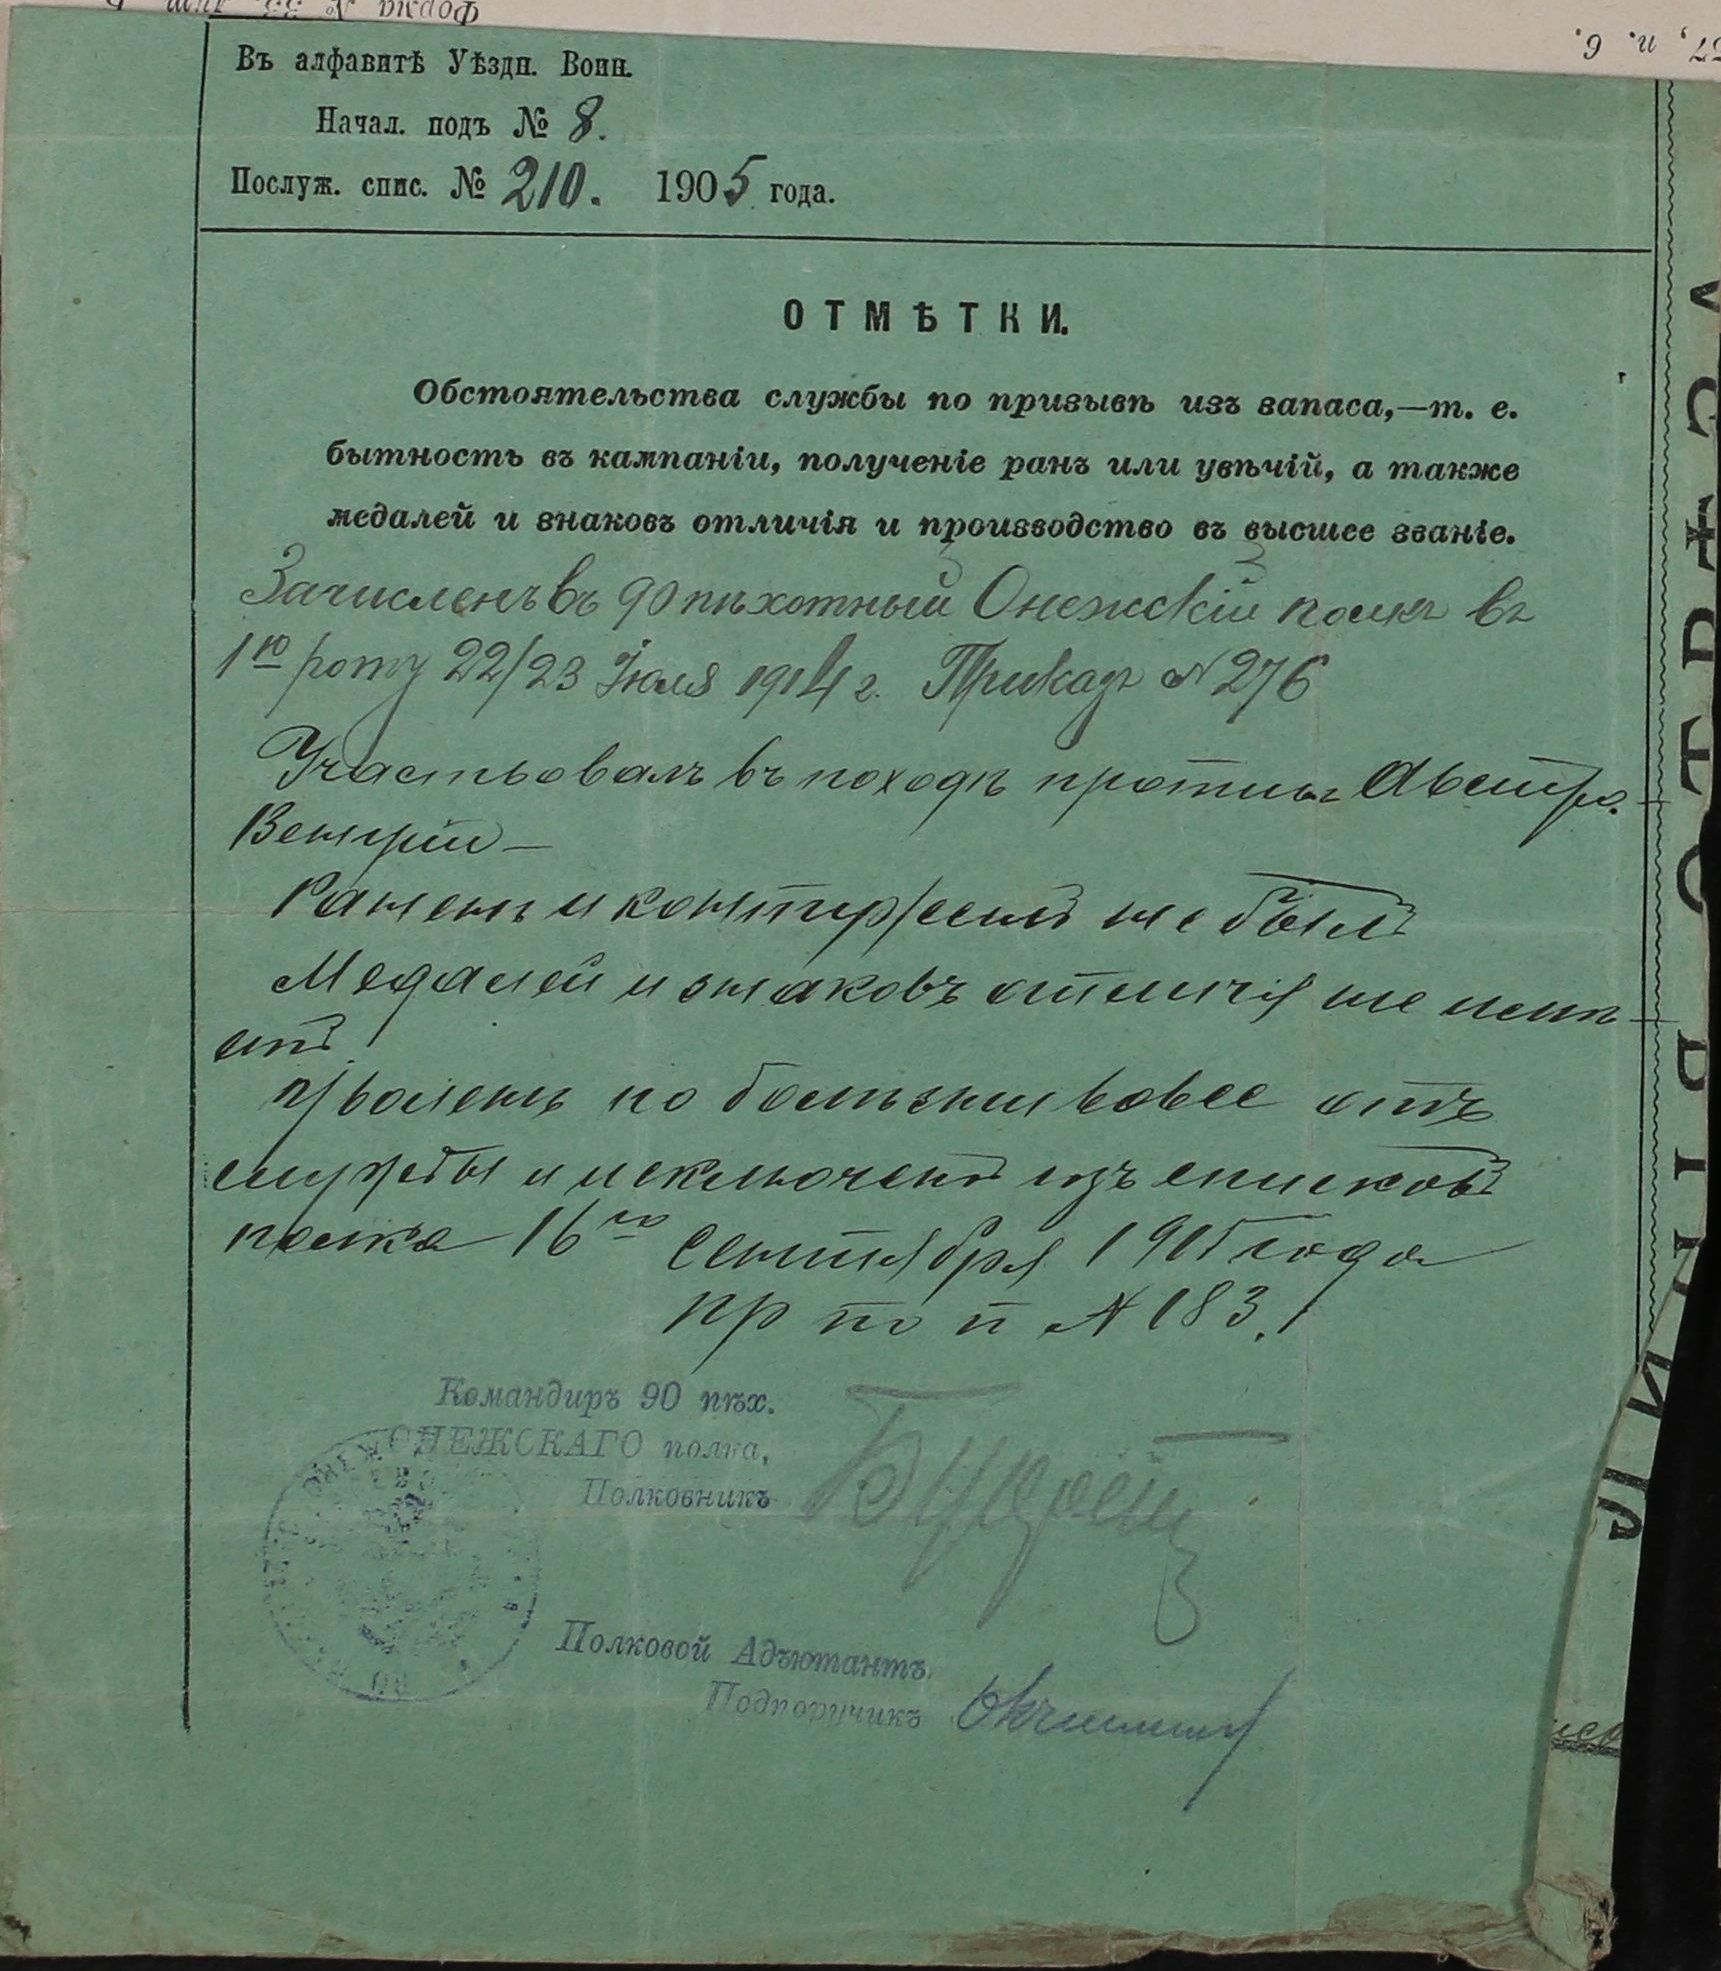 Форма № 33.
Въ алфавитѣ Уѣздн. Воин.
Начал. подъ № 8.
Послуж. спис. № 210. 1905 года.
ОТМѢТКИ.
Обстоятельства службы по призывѣ изъ запаса,—т. е.
бытность въ кампаніи, полученіе ранъ или увѣчій, а также
медалей и знаковъ отличія и производство въ высшее званіе.
Зачисленъ въ 90 пѣхотный Онежскій полкъ въ
1ю роту 22/23 Іюля 1914 г. Приказъ № 276
Участвовалъ въ походѣ противъ Австро-
Венгріи —
Раненъ и контуженъ не былъ
Медалей и знаковъ отличія не имѣ-
етъ
Уволенъ по болѣзни вовсе отъ
службы и исключенъ изъ списковъ
полка 16го Сентября 1915 года
пр по п № 183.
Командиръ 90 пѣх.
ОНЕЖСКАГО полка,
Полковникъ
Полковой Адъютантъ,
Подпоручикъ